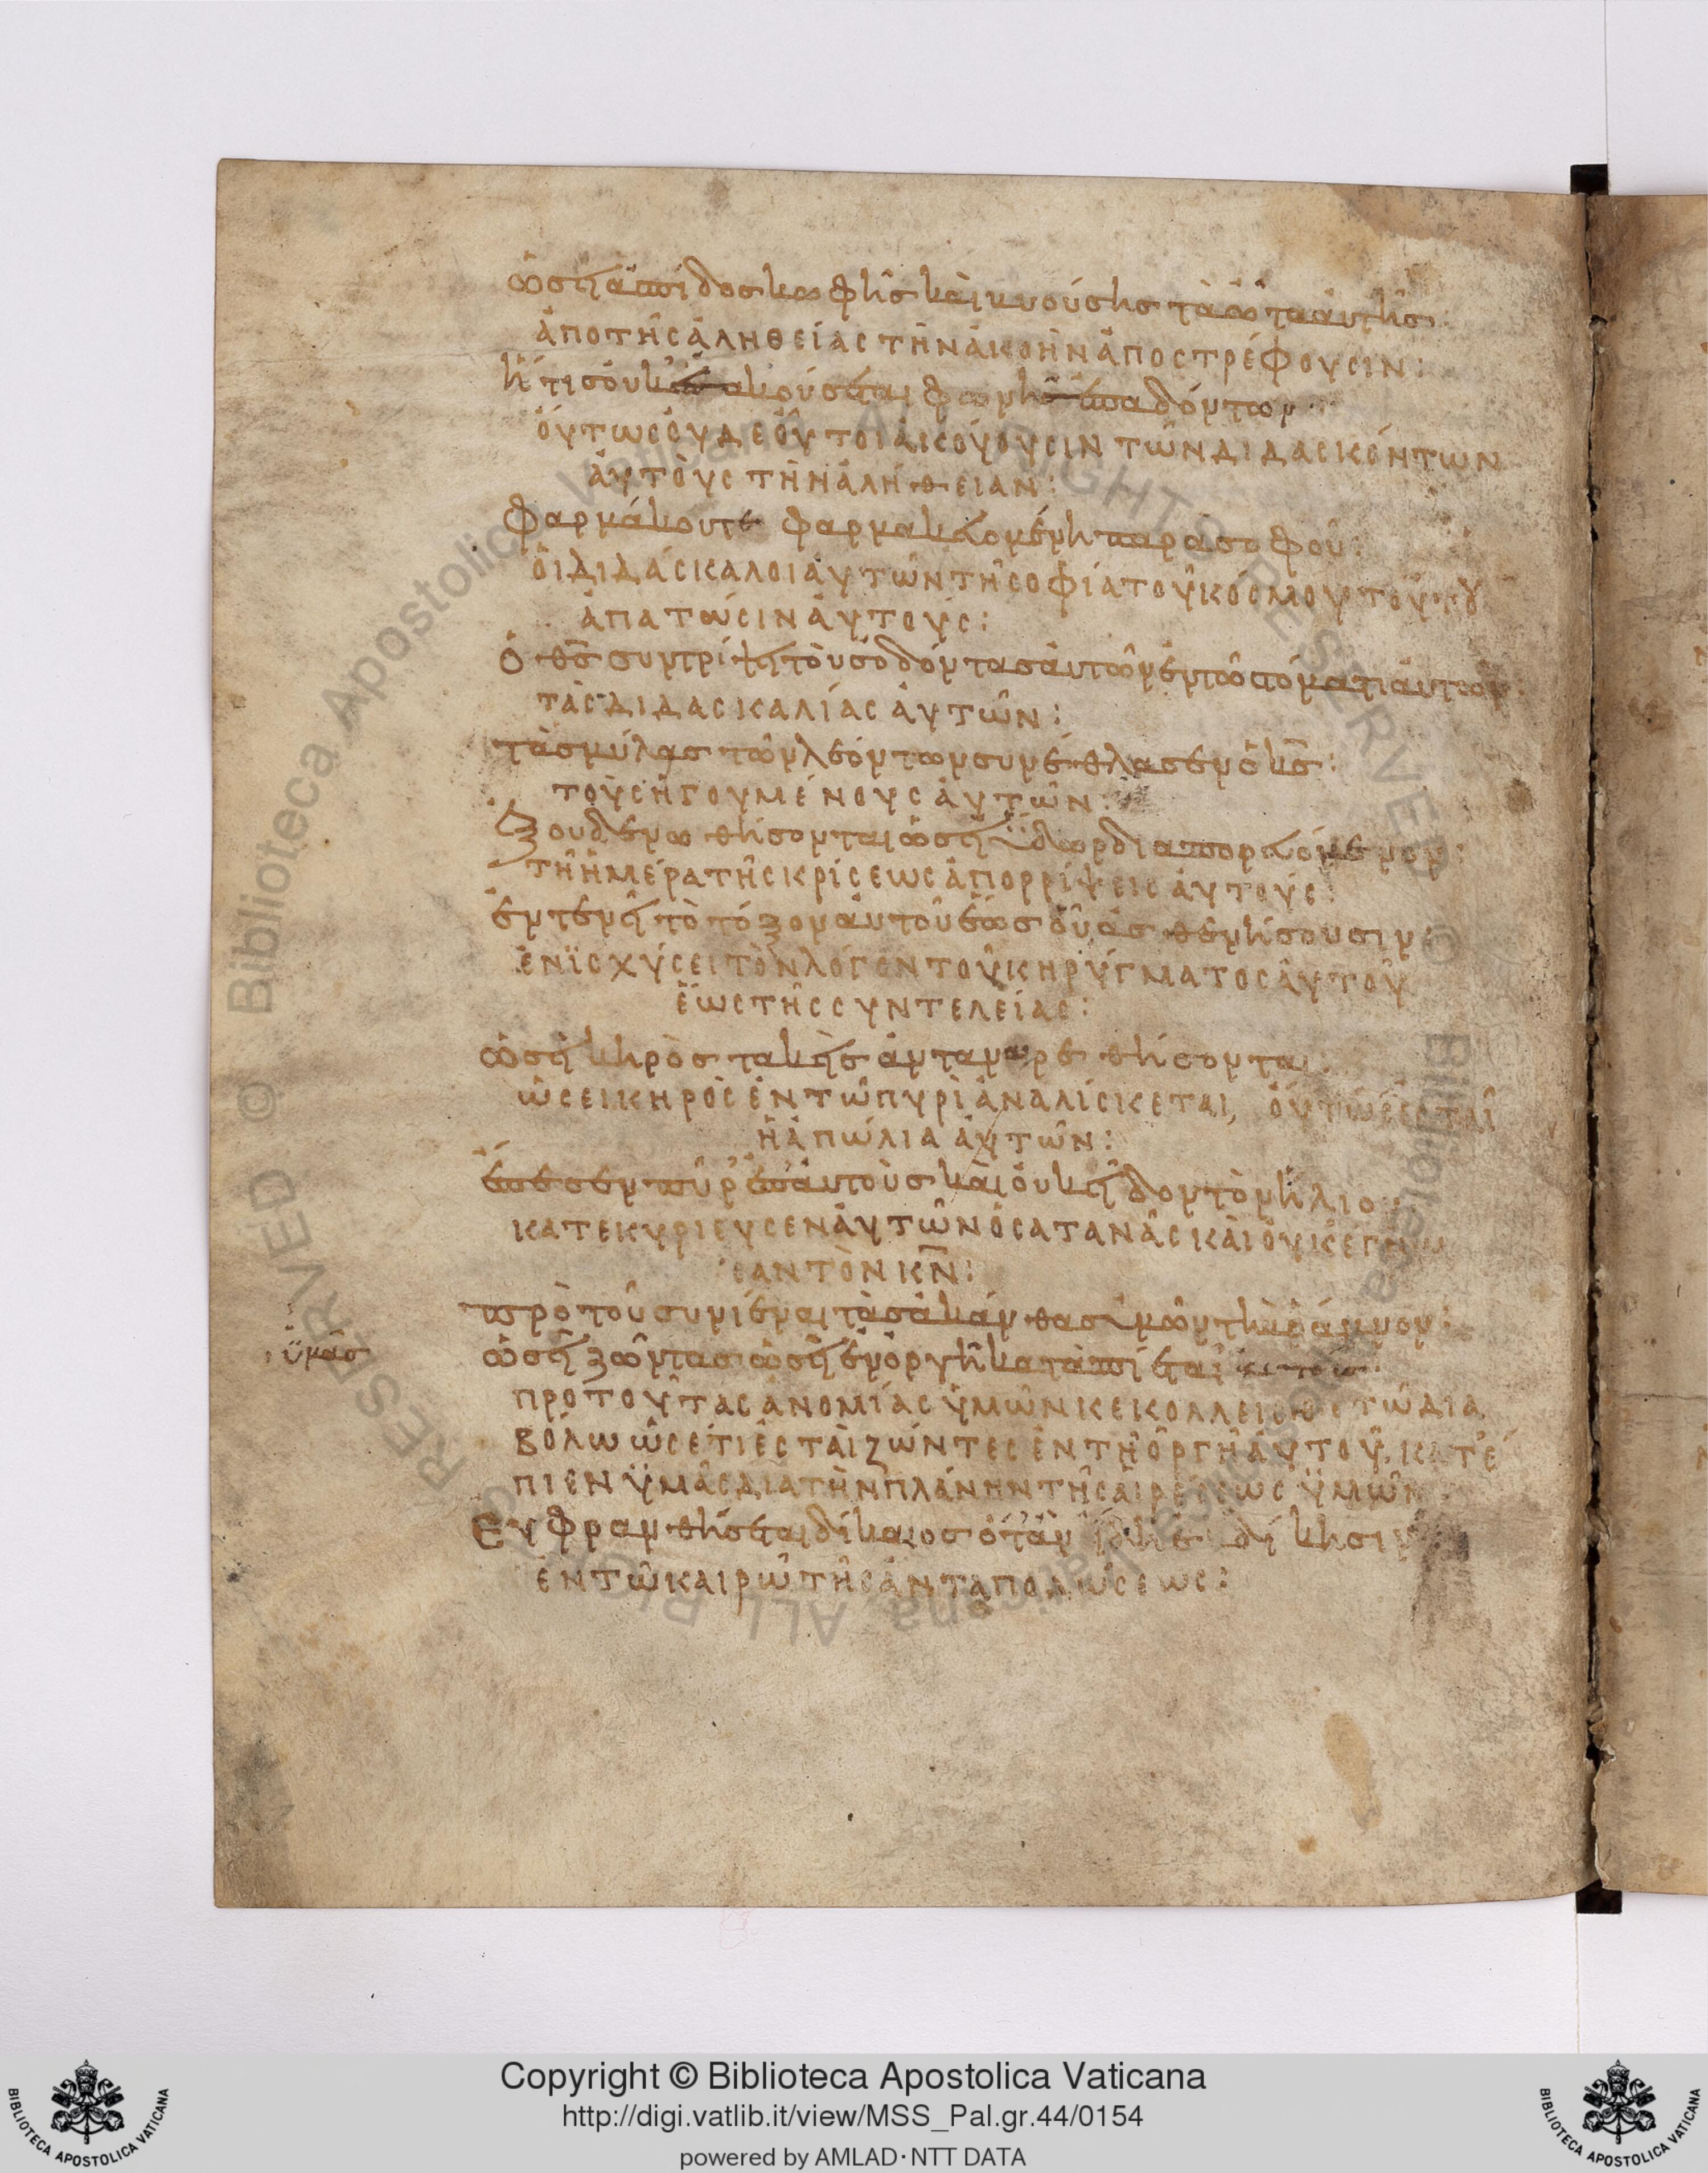 ὡσεὶ ἀσπίδος κωφῆς καὶ κυούσης τὰ ὦτα ἀυτῆς
ἀπο τῆς ἀληθείας τὴν ἀκοὴν ἀποστρέφουσιν:
ἥτις ὀυκ ακούσεται φωνῆς ἐπαδόντων
ὄυτως ὀυδε ὄυτοι ἀκούουσιν τῶν διδασκόντων
ἀυτοὺς τὴν ἀλήθειαν:
φαρμάκου τε φαρμακευομένη παρὰ σοφοῦ:
ὁι διδάσκαλοι ἀυτῶν τῆ σοφία τοῦ κόσμου τούτου
ἀπατώσιν ἀυτούς:
ὁ θς συντρίψει τοὺς οδόντας ἀυτῶν ἐν τῶ στόματι ἀυτῶν
τὰς διδασκαλίας ἀυτῶν:
τὰς μύλας τῶν λεόντων συνέθλασεν ὁ κς:
τοὺς ἡγουμένους ἀυτῶν:
ἐξουδενωθήσονται ὡσεὶ ὕδωρ διαπορευόμενον:
τῆ ἡμέρα τῆς κρίσεως ἀπορρίψεις ἀυτούς:
ἐντενεῖ τὸ τόξον ἀυτοῦ ἕως ὅυ ἀσθενήσουσιν:
ἐνϊσχύσει τὸν λόγον τοῦ κηρύγματος ἀυτοῦ
ἕως τῆς συντελείας:
ὡσεὶ κηρὸς τακεὶς ἀνταναιρεθήσονται:
ὡσει κηρὸς ἐν τῶ πυρὶ ἀναλίσκεται, ὄυτως ἔσται
ἡ ἀπώλια ἀυτῶν:
ἔπεσεν πῦρ ἐπ ἀυτοὺς καὶ ὀυκ εἶδον τὸν ἥλιον:
κατεκυριευσεν ἀυτῶν ὁ σατανᾶς καὶ ὀυκ ἐγνω
σαν τὸν κν:
πρὸ τοῦ συνιέναι τὰς ἀκάνθας ὑμῶν τὴν ῥάμνον:
ὑμᾶς
ὡσεὶ ζῶντας ὡσεὶ ἐν ὀργῆ καταπίεται
προ τοῦ τας ἀνομίας ὑμῶν κεκολλεισθε τῶ δια
βόλω ὡς ἔτι ἐσταὶ ζώντες ἐν τῆ ὀργῆ ἀυτοῦ, κατέ
πιεν ϋμᾶς διὰ τὴν πλάνην τῆς αἱρέσεως ϋμῶν
Ευφρανθήσεται δίκαιος ὅταν ἴδη ἐκδίκησιν
ἐν τῶ καιρῶ τῆς ἀνταποδώσεως:
Copyright © Biblioteca Apostolica Vaticana
http://digi.vatlib.it/view/MSS_Pal.gr.44/0154
powered by AMLAD·NTT DATA